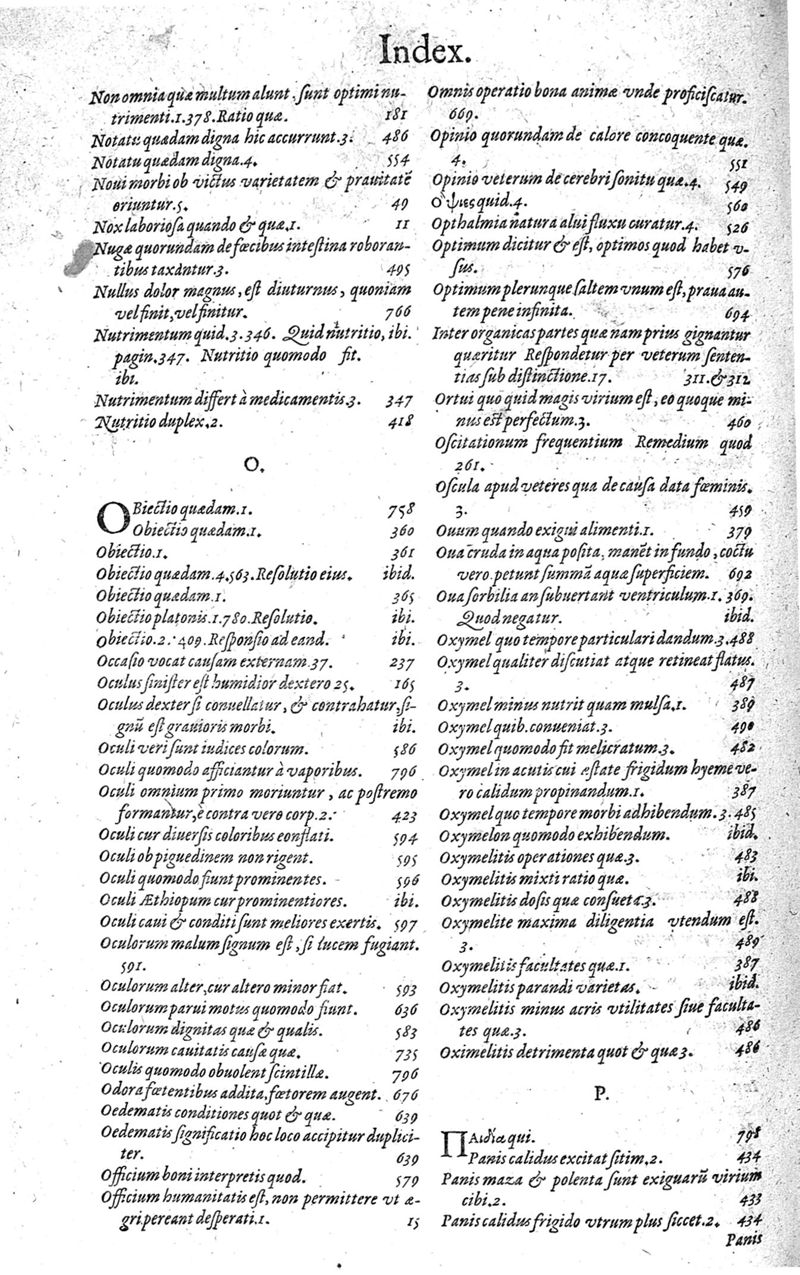 Index.
Non omnia quæ multum alunt, ſunt optimi nu-
trimenti.1.378.Ratio quæ. 181
Notatu quædam digna hic accurrunt.3. 486
Notatu quædam digna.4. 554
Noui morbi ob victus varietatem & prauitatē
oriuntur.5. 49
Nox laborioſa quando & quæ.1. 11
Nugæ quorundam de fœcibus inteſtina roboran-
tibus taxantur.3. 495
Nullus dolor magnus, eſt diuturnus, quoniam
vel finit, vel finitur. 766
Nutrimentum quid.3.346. Quid nutritio, ibi.
pagin.347. Nutritio quomodo fit.
ibi.
Nutrimentum differt à medicamentis.3. 347
Nutritio duplex.2. 418
O.
OBiectio quædam.1. 758
Obiectio quædam.1. 360
Obiectio.1. 361
Obiectio quædam.4.563.Reſolutio eius. ibid.
Obiectio quædam.1. 365
Obiectio platonis.1.780.Reſolutio. ibi.
Obiectio.2.409.Reſponſio ad eand. ibi.
Occaſio vocat cauſam externam.37. 237
Oculus ſiniſter eſt humidior dextero 25. 165
Oculus dexter ſi conuellatur, & contrahatur, ſi-
gnū eſt grauioris morbi. ibi.
Oculi veri ſunt iudices colorum. 586
Oculi quomodo afficiantur à vaporibus. 796
Oculi omnium primo moriuntur, ac poſtremo
formantur, è contra vero corp.2. 423
Oculi cur diuerſis coloribus conflati. 594
Oculi ob piguedinem non rigent. 595
Oculi quomodo fiunt prominentes. 596
Oculi Æthiopum cur prominentiores. ibi.
Oculi caui & conditi ſunt meliores exertis. 597
Oculorum malum ſignum eſt, ſi lucem fugiant.
591.
Oculorum alter, cur altero minor fiat. 593
Oculorum parui motus quomodo fiunt. 636
Oculorum dignitas quæ & qualis. 583
Oculorum cauitatis cauſæ quæ. 735
Oculis quomodo obuolent ſcintillæ. 796
Odora fœtentibus addita, fœtorem augent. 676
Oedematis conditiones quot & quæ. 639
Oedematis ſignificatio hoc loco accipitur duplici-
ter. 639
Officium boni interpretis quod. 579
Officium humanitatis eſt, non permittere vt æ-
gri pereant deſperati.1. 15
Omnis operatio bona animæ vnde proficiſcatur.
669.
Opinio quorundam de calore concoquente quæ.
4. 551
Opinio veterum de cerebri ſonitu quæ.4. 549
Οψιες quid.4. 560
Opthalmia natura alui fluxu curatur.4. 526
Optimum dicitur & eſt, optimos quod habet v-
ſus. 576
Optimum plerunque ſaltem vnum eſt, praua au-
tem pene infinita. 694
Inter organicas partes quænam prius gignantur
quæritur Reſpondetur per veterum ſenten-
tias ſub diſtinctione.17. 311.&312
Ortui quo quid magis virium eſt, eo quoque mi-
nus est perfectum.3. 460
Oſcitationum frequentium Remedium quod
261.
Oſcula apud veteres qua de cauſa data fœminis.
3. 459
Ouum quando exigui alimenti.1. 379
Oua cruda in aqua poſita, manēt in fundo, coctu
vero petunt ſummā aquæ ſuperficiem. 692
Oua ſorbilia an ſubuertant ventriculum.1. 369.
Quod negatur. ibid.
Oxymel quo tempore particulari dandum.3.488
Oxymel qualiter diſcutiat atque retineat flatus.
3. 487
Oxymel minus nutrit quam mulſa.1. 389
Oxymel quib. conueniat.3. 490
Oxymel quomodo fit melicratum.3. 482
Oxymel in acutis cui æſtate frigidum hyeme ve-
ro calidum propinandum.1. 387
Oxymel quo tempore morbi adhibendum.3.485
Oxymelon quomodo exhibendum. ibid.
Oxymelitis operationes quæ.3. 483
Oxymelitis mixti ratio quæ. ibi.
Oxymelitis doſis quæ conſueta.3. 488
Oxymelite maxima diligentia vtendum eſt.
3. 489
Oxymelitis facultates quæ.1. 387
Oxymelitis parandi varietas. ibid.
Oxymelitis minus acris vtilitates ſiue faculta-
tes quæ.3. 486
Oximelitis detrimenta quot & quæ 3. 486
P.
ΠΑιδία qui. 798
Panis calidus excitat ſitim.2. 434
Panis maza & polenta ſunt exiguarū virium
cibi.2. 433
Panis calidus frigido vtrum plus ſiccet.2. 434
Panis